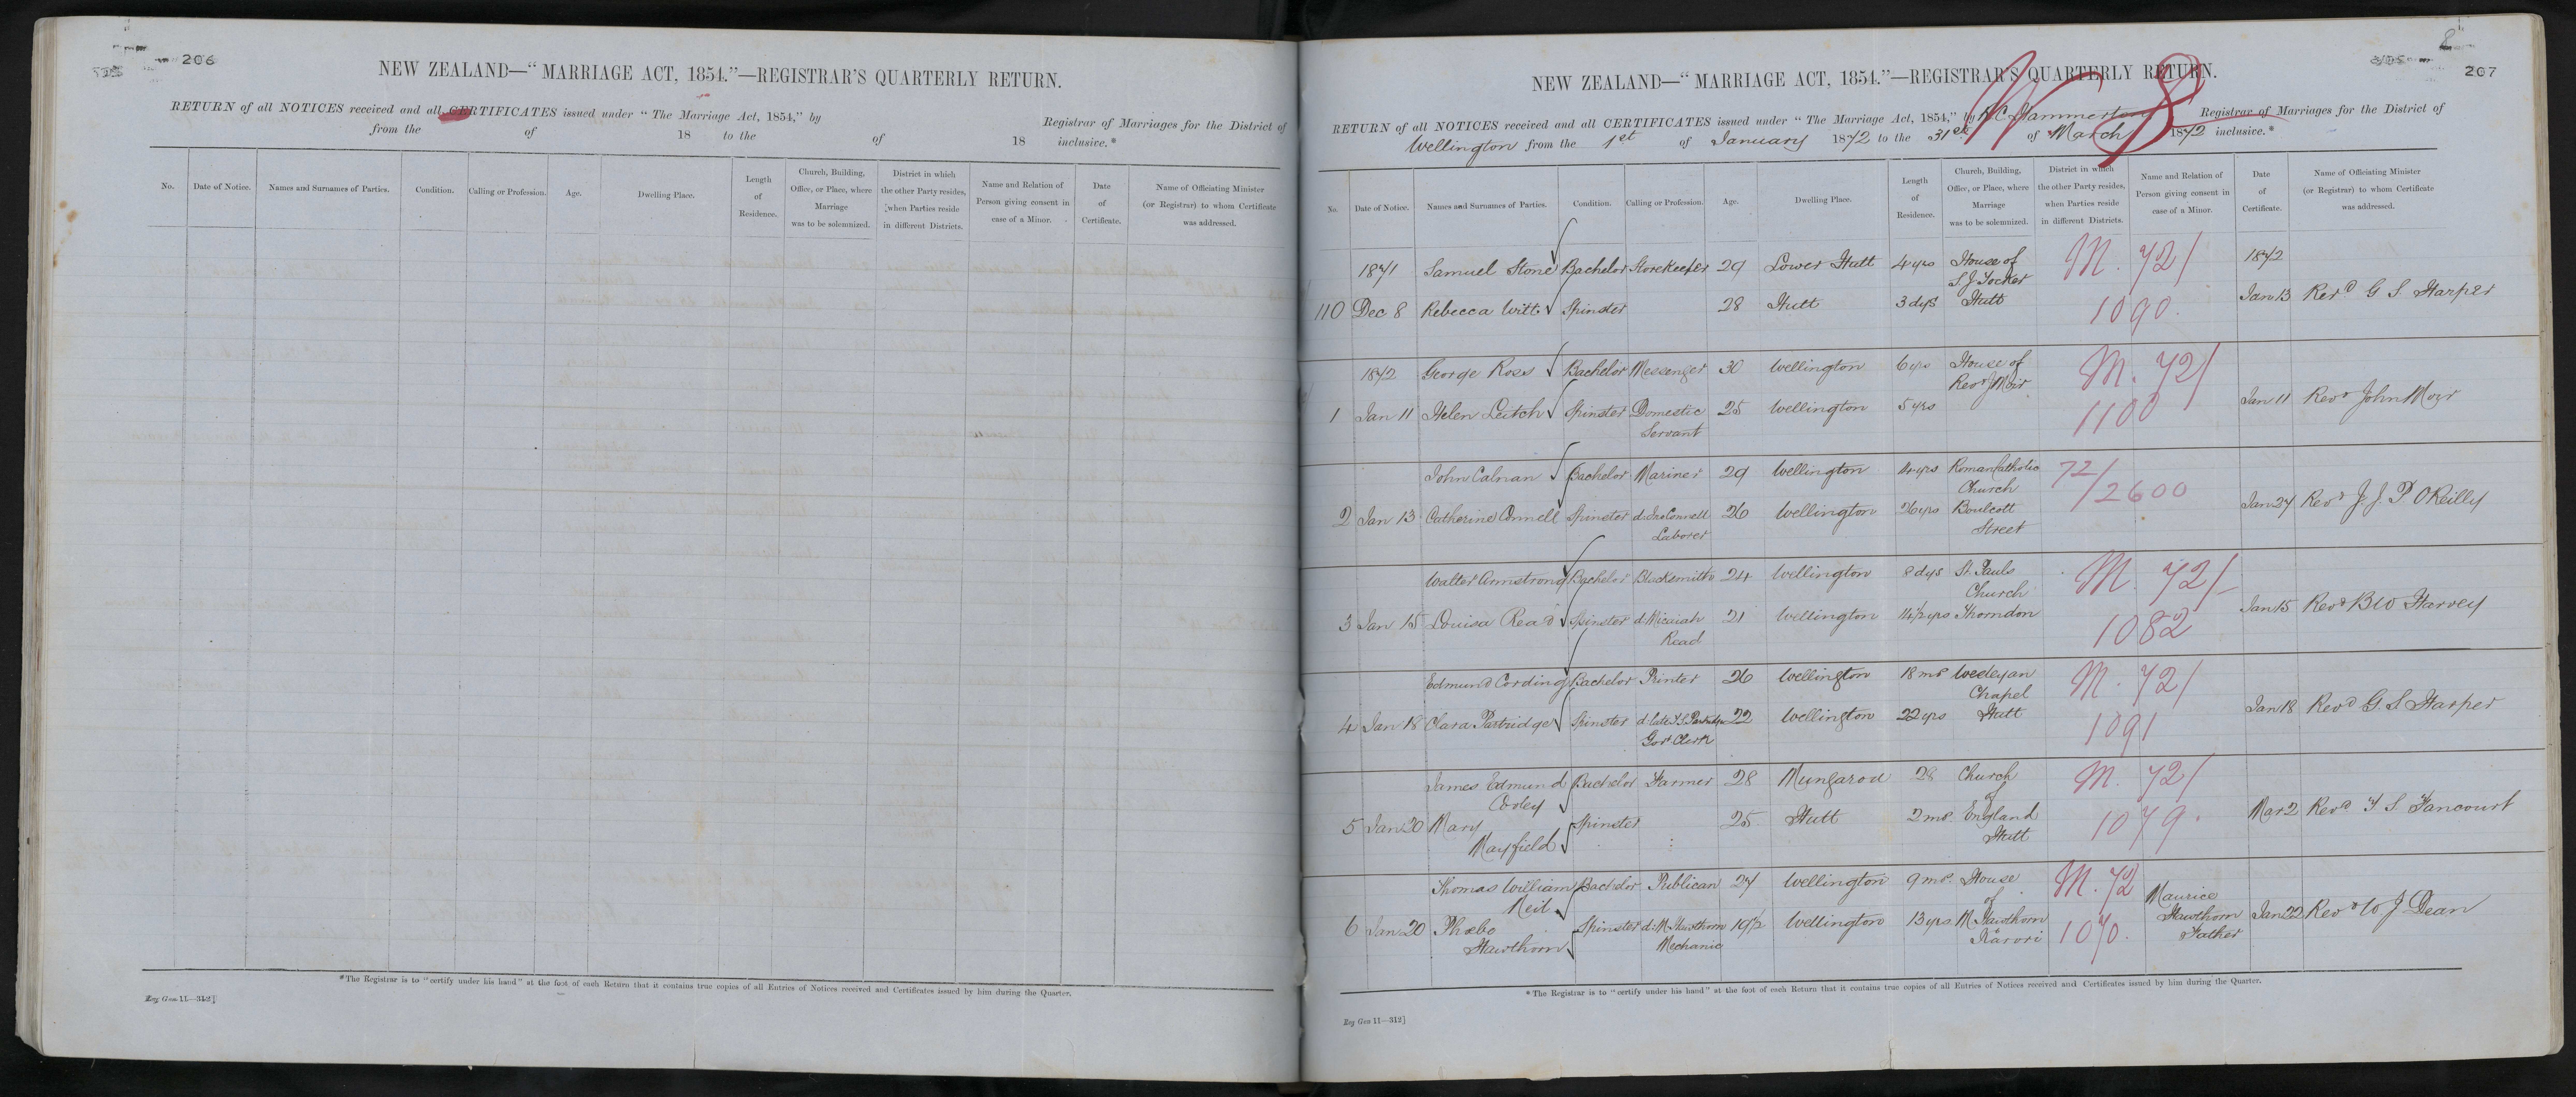 206
NEW ZEALAND—“ MARRIAGE ACT, 1854.”—REGISTRAR'S QUARTERLY RETURN.
RETURN of all NOTICES received and all CERTIFICATES issued under “ The Marriage Act, 1854,” by Registrar of Marriages for the District of
from the of 18 to the of 18 inclusive.*
No. Date of Notice. Names and Surnames of Parties. Condition. Calling or Profession. Age. Dwelling Place. Length of Residence. Church, Building, Office, or Place, where Marriage was to be solemnized. District in which the other Party resides, when Parties reside in different Districts. Name and Relation of Person giving consent in case of a Minor. Date of Certificate. Name of Officiating Minister (or Registrar) to whom Certificate was addressed.
*The Registrar is to “certify under his hand” at the foot of each Return that it contains true copies of all Entries of Notices received and Certificates issued by him during the Quarter.
Reg Gen 11—312]
8
207
NEW ZEALAND—“ MARRIAGE ACT, 1854.”—REGISTRAR'S QUARTERLY RETURN.
8
RETURN of all NOTICES received and all CERTIFICATES issued under “ The Marriage Act, 1854,” by Hammerton Registrar of Marriages for the District of
Wellington from the 1st of January 1872 to the 31st of March 1872 inclusive.*
No. Date of Notice. Names and Surnames of Parties. Condition. Calling or Profession. Age. Dwelling Place. Length of Residence. Church, Building, Office, or Place, where Marriage was to be solemnized. District in which the other Party resides, when Parties reside in different Districts. Name and Relation of Person giving consent in case of a Minor. Date of Certificate. Name of Officiating Minister (or Registrar) to whom Certificate was addressed.
1871 Samuel Stone Bachelor Storekeeper 29 Lower Hutt 4 yrs House of M. 72/ 1872
S. J. Tocker
110 Dec 8 Rebecca Witt Spinster 28 Hutt 3 dys Hutt 1090. Jan 13 Revd G S Harper
1872 George Ross Bachelor Messenger 30 Wellington 6 yrs House of M. 72/
Revd J Moir
1 Jan 11 Helen Leitch Spinster Domestic 25 Wellington 5 yrs 1100 Jan 11 Revd John Moir
Servant
John Calnan Bachelor Mariner 29 Wellington 4 yrs Roman Catholic 72/
Church /2600
2 Jan 13 Catherine Connell Spinster d. Jno Connell 26 Wellington 26 yrs Boulcott Jan 24 Revd J. J. P. OReilly
Laborer Street
Walter Armstrong Bachelor Blacksmith 24 Wellington 8 dys St. Pauls M. 72/
Church
3 Jan 15 Louisa Read Spinster d. Micaiah 21 Wellington 14½ yrs Thorndon 1082 Jan 15 Revd B W Harvey
Read
Edmund Cording Bachelor Printer 26 Wellington 18 ms Wesleyan M. 72/
Chapel
4 Jan 18 Clara Partridge Spinster d. late T. S. Partridge 22 Wellington 22 yrs Hutt 1091 Jan 18 Revd G. S. Harper
Govt Clerk
James Edmund Bachelor Farmer 28 Mungaroa 28 Church M. 72/
Cooley of
5 Jan 20 Mary Spinster 25 Hutt 2 ms. England 1079. Mar 2 Revd T. S. Fancourt
Mayfield Hutt
Thomas William Bachelor Publican 27 Wellington 9 ms. House M. 72 Maurice
Neil of Hawthorn
6 Jan 20 Phœbe Spinster d. M. Hawthorn 19½ Wellington 13 yrs M. Hawthorn 1070. Father Jan 22 Revd W J Dean
Hawthorn Mechanic Karori
*The Registrar is to “certify under his hand” at the foot of each Return that it contains true copies of all Entries of Notices received and Certificates issued by him during the Quarter.
Reg Gen 11—312]